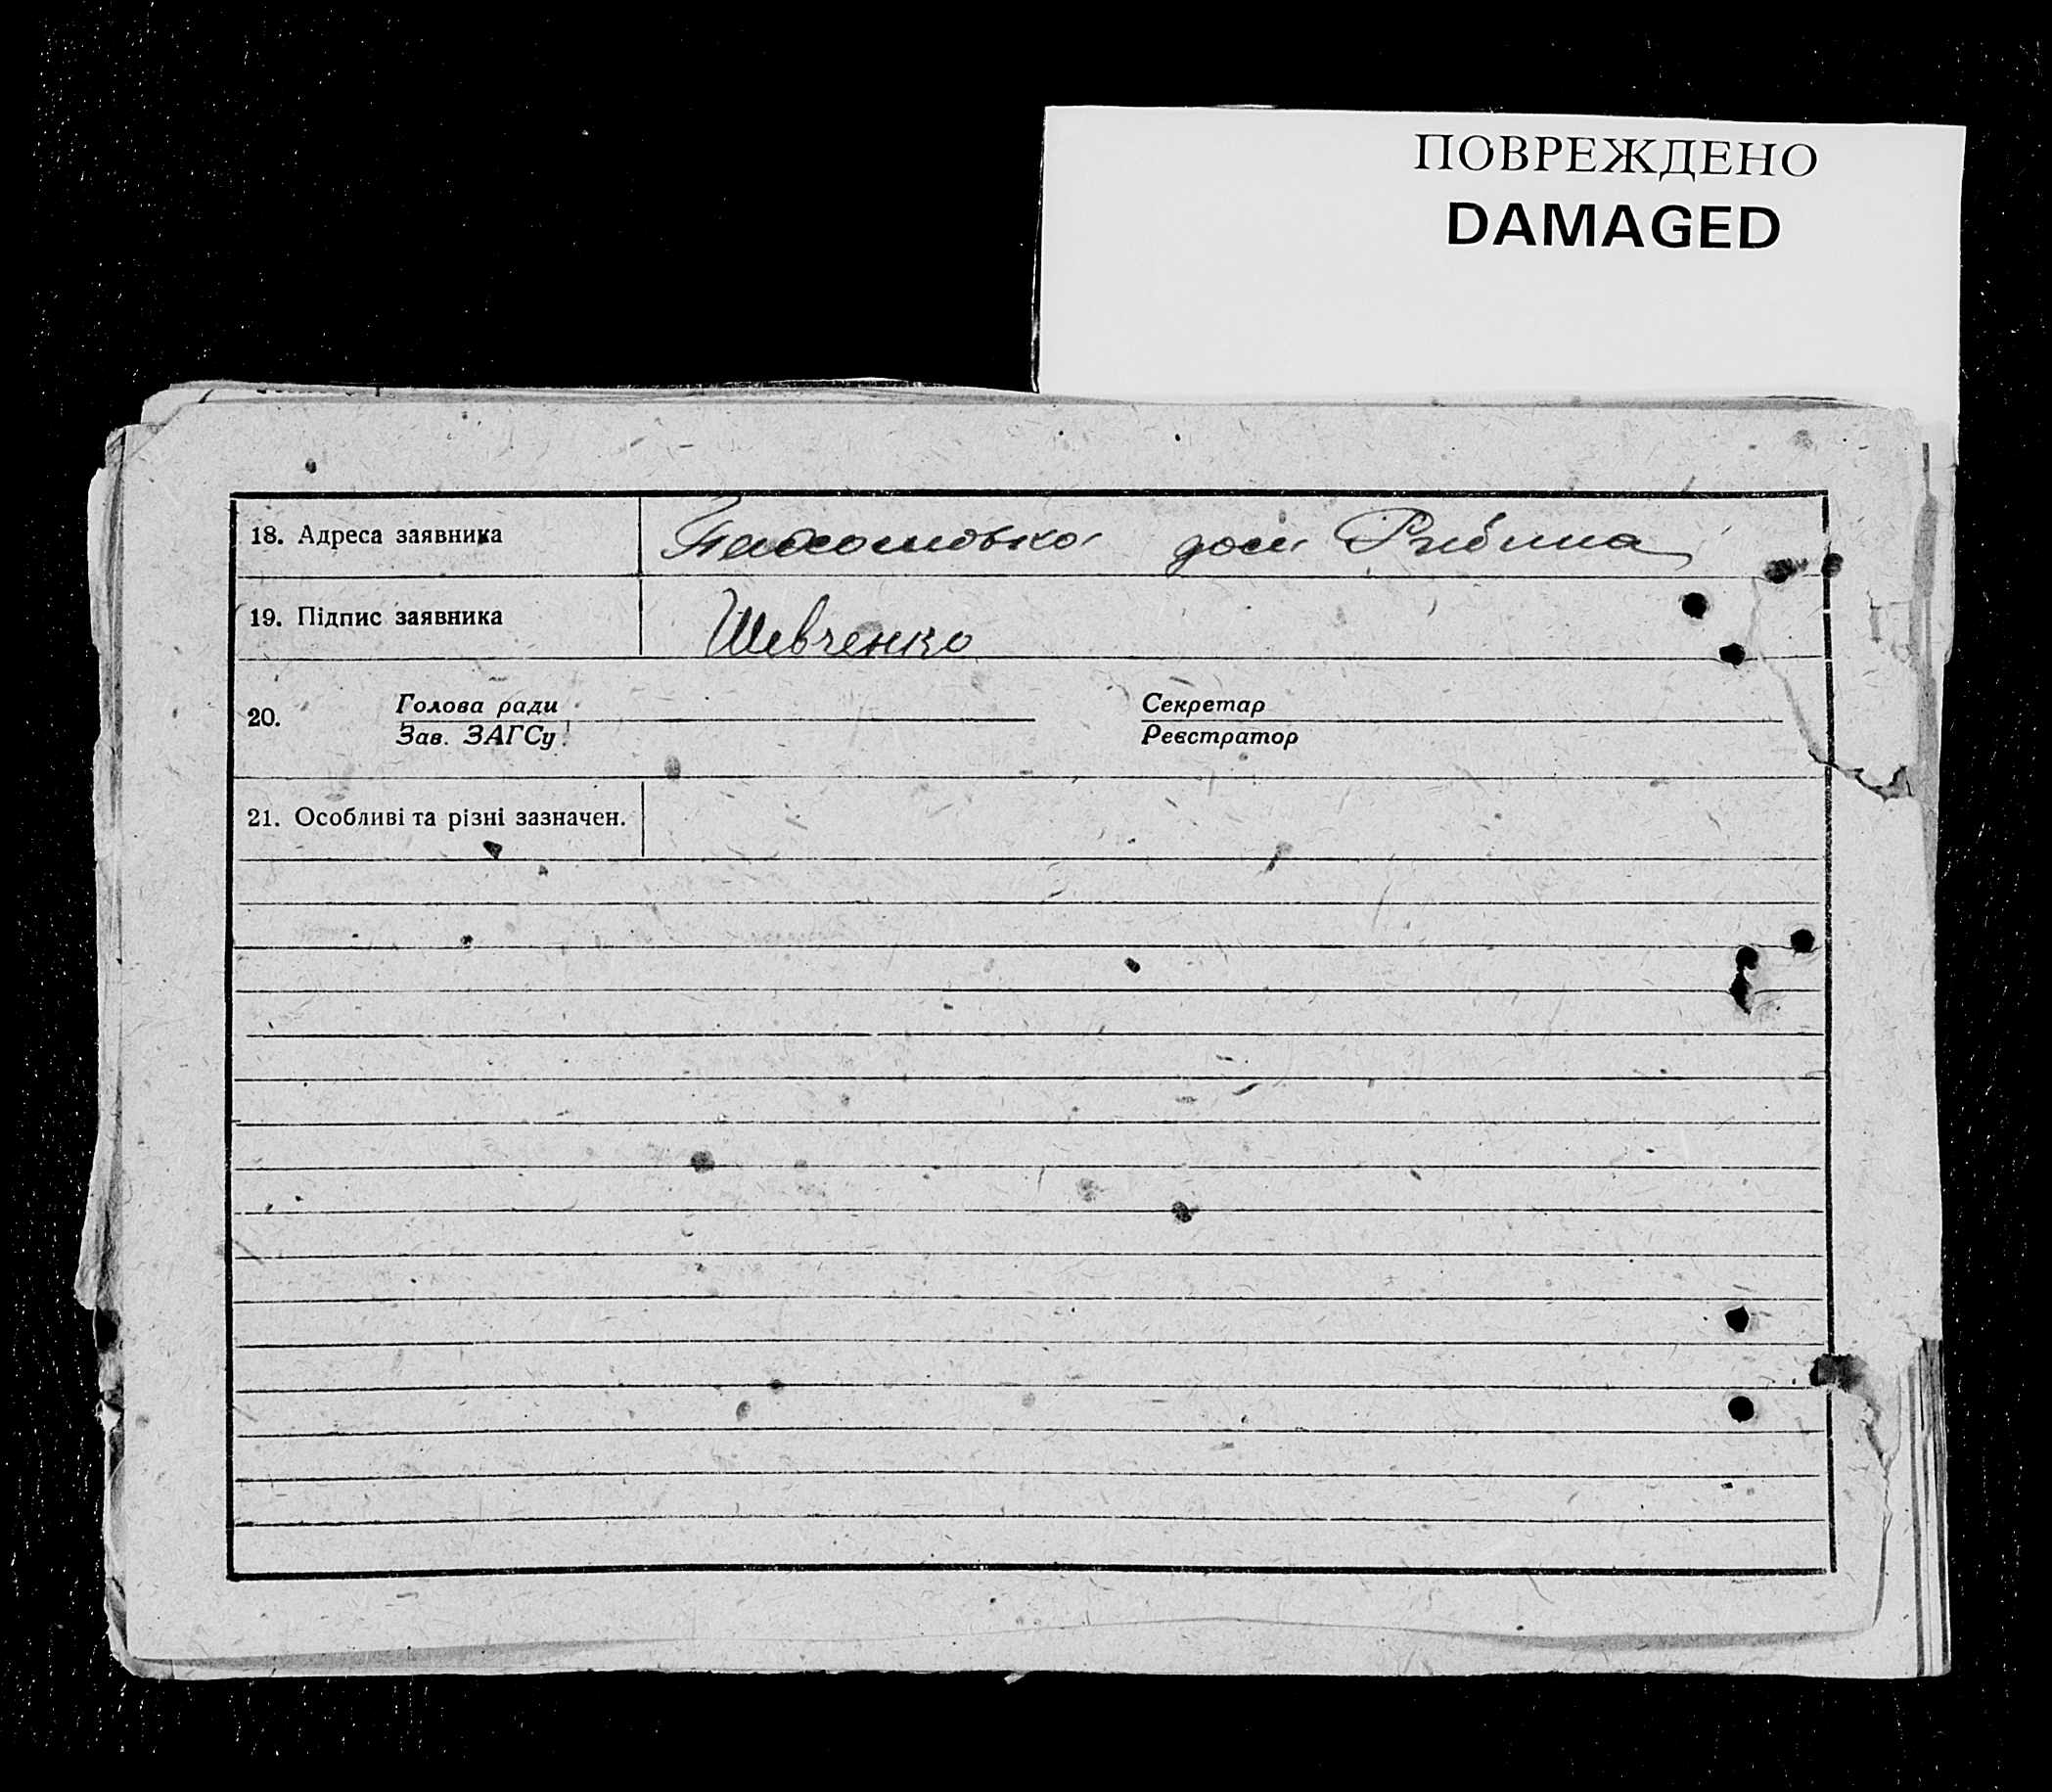 ПОВРЕЖДЕНО
DAMAGED
18. Адреса заявника дом Рибина
19. Підпис заявника Шевченко
20. Голова ради Секретар
Зав. ЗАГСу Реєстратор
21. Особливі та різні зазначен.